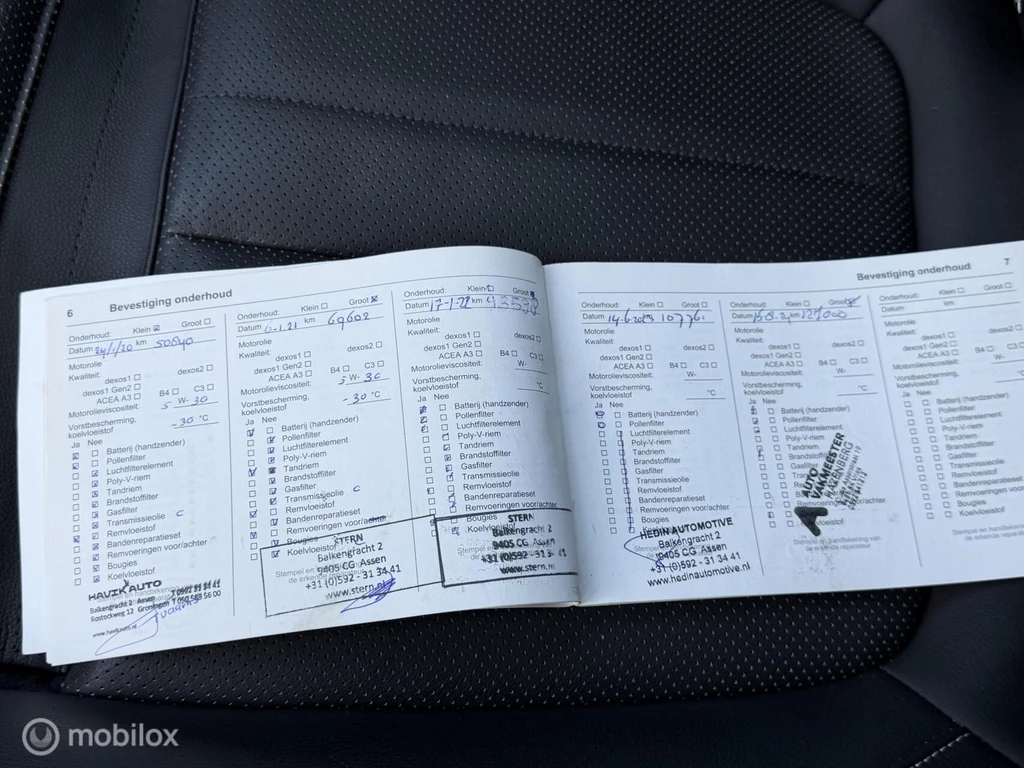 6 Bevestiging onderhoud
Onderhoud: Klein Groot
Datum 24/1/20 km 50640
Motorolie
Kwaliteit:
dexos1 dexos2
dexos1 Gen2
ACEA A3 B4 C3
Motorolieviscositeit: 5 W- 30
Vorstbescherming,
koelvloeistof -30 °C
Ja Nee
Batterij (handzender)
Pollenfilter
Luchtfilterelement
Poly-V-riem
Tandriem
Brandstoffilter
Gasfilter
Transmissieolie C
Remvloeistof
Bandenreparatieset
Remvoeringen voor/achter
Bougies
Koelvloeistof
HAVIK AUTO
Balkengracht 2 Assen
Rostockweg 12 Groningen
www.havikauto.nl
Onderhoud: Klein Groot
Datum km 69602
Motorolie
Kwaliteit:
dexos1 dexos2
dexos1 Gen2
ACEA A3 B4 C3
Motorolieviscositeit: 5 W- 30
Vorstbescherming,
koelvloeistof -30 °C
Ja Nee
Batterij (handzender)
Pollenfilter
Luchtfilterelement
Poly-V-riem
Tandriem
Brandstoffilter
Gasfilter
Transmissieolie C
Remvloeistof
Bandenreparatieset
Remvoeringen voor/achter
Bougies
Koelvloeistof
STERN
Balkengracht 2
9405 CG Assen
+31 (0)592 - 31 34 41
www.stern.nl
Onderhoud: Klein Groot
Datum 17-1-22 km
Motorolie
Kwaliteit:
dexos1 dexos2
dexos1 Gen2
ACEA A3 B4 C3
Motorolieviscositeit: W-
Vorstbescherming,
koelvloeistof °C
Ja Nee
Batterij (handzender)
Pollenfilter
Luchtfilterelement
Poly-V-riem
Tandriem
Brandstoffilter
Gasfilter
Transmissieolie
Remvloeistof
Bandenreparatieset
Remvoeringen voor/achter
Bougies
Koelvloeistof
STERN
Balkengracht 2
9405 CG Assen
+31 (0)592 - 31 34 41
www.stern.nl
Bevestiging onderhoud 7
Onderhoud: Klein Groot
Datum 14-6-2023 km 107761
Motorolie
Kwaliteit:
dexos1 dexos2
dexos1 Gen2
ACEA A3 B4 C3
Motorolieviscositeit: W-
Vorstbescherming,
koelvloeistof °C
Ja Nee
Batterij (handzender)
Pollenfilter
Luchtfilterelement
Poly-V-riem
Tandriem
Brandstoffilter
Gasfilter
Transmissieolie
Remvloeistof
Bandenreparatieset
Remvoeringen voor/achter
Bougies
Koelvloeistof
HEDIN AUTOMOTIVE
Balkengracht 2
9405 CG Assen
+31 (0)592 - 31 34 41
www.hedinautomotive.nl
Onderhoud: Klein Groot
Datum km 127000
Motorolie
Kwaliteit:
dexos1 dexos2
dexos1 Gen2
ACEA A3 B4 C3
Motorolieviscositeit: W-
Vorstbescherming,
koelvloeistof °C
Ja Nee
Batterij (handzender)
Pollenfilter
Luchtfilterelement
Poly-V-riem
Tandriem
Brandstoffilter
Gasfilter
AUTO
VAKMEESTER
Stempel en handtekening van
de erkende reparateur
Onderhoud: Klein Groot
Datum km:
Motorolie
Kwaliteit:
dexos1 dexos2
dexos1 Gen2
ACEA A3 B4 C3
Motorolieviscositeit: W-
Vorstbescherming,
koelvloeistof °C
Ja Nee
Batterij (handzender)
Pollenfilter
Luchtfilterelement
Poly-V-riem
Tandriem
Brandstoffilter
Gasfilter
Transmissieolie
Remvloeistof
Bandenreparatieset
Remvoeringen voor/achter
Bougies
Koelvloeistof
mobilox